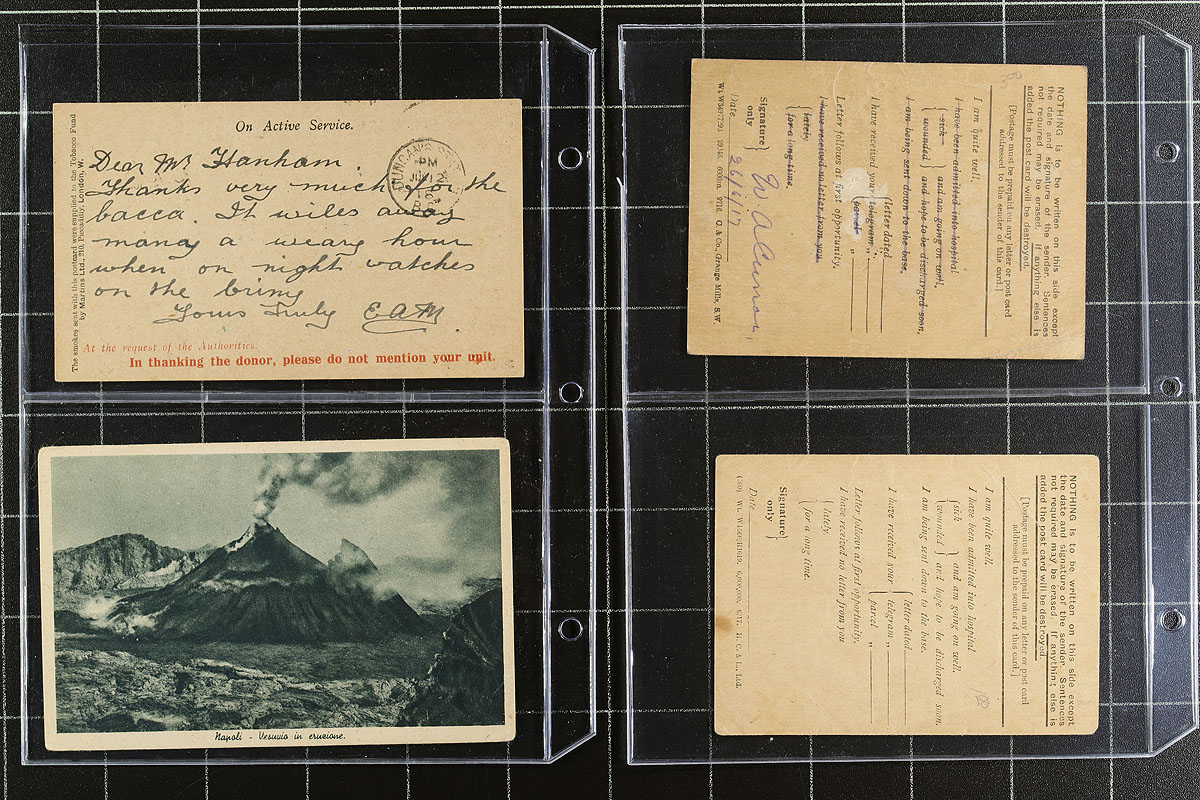 On Active Service.
Dear Mr Hanham
Thanks very much for the
bacca. It wiles away
many a weary hour
when on night watches
on the briny
Yours Truly EAM.
At the request of the Authorities.
In thanking the donor, please do not mention your unit.
The smokes sent with this postcard were supplied the Tobacco Fund
by Martins Ltd., 210, Piccadilly, London, W.
PM
JU 12
Napoli - Vesuvio in eruzione.
NOTHING is to be written on this side except
the date and signature of the sender. Sentences
not required may be erased. If anything else is
added the post card will be destroyed.
[Postage must be prepaid on any letter or post card
addressed to the sender of this card.]
I am quite well.
I have been admitted into hospital
{sick } and am going on well.
{wounded } and hope to be discharged soon.
I am being sent down to the base.
I have received your {letter dated
{telegram „
{parcel „
Letter follows at first opportunity.
I have received no letter from you
{lately
{for a long time.
Signature
only
Date 26/6/17
NOTHING is to be written on this side except
the date and signature of the sender. Sentences
not required may be erased. If anything else is
added the post card will be destroyed.
[Postage must be prepaid on any letter or post card
addressed to the sender of this card.]
I am quite well.
I have been admitted into hospital
{sick } and am going on well.
{wounded } and hope to be discharged soon.
I am being sent down to the base.
I have received your {letter dated
{telegram „
{parcel „
Letter follows at first opportunity.
I have received no letter from you
{lately.
{for a long time.
Signature
only
Date